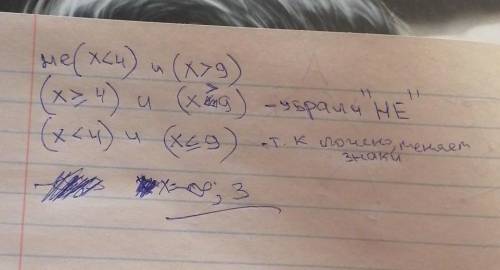 не(x<4) и (x>9)
(x≥4) и (x>9) - убрали "НЕ"
(x<4) и (x≤9) - т. к ложно, меняет знаки
x=-∞; 3